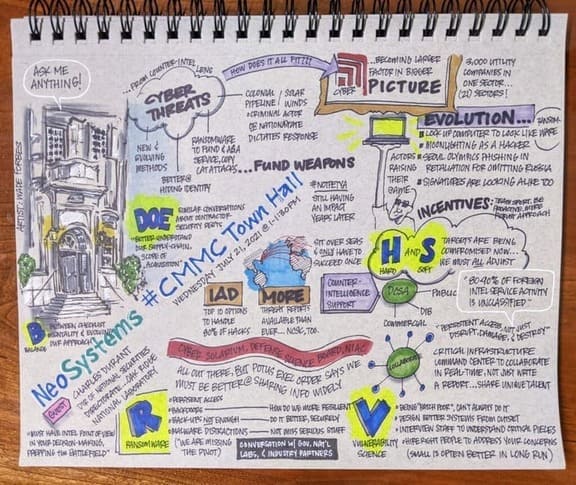 ASK ME
ANYTHING!
...FROM COUNTER-INTEL LENS
CYBER
THREATS
HOW DOES IT ALL FIT???
CYBER
...BECOMING LARGER
FACTOR IN BIGGER
PICTURE
3,000 UTILITY
COMPANIES IN
ONE SECTOR...
(21) SECTORS!
COLONIAL / SOLAR
PIPELINE / WINDS
• CRIMINAL ACTOR
OR NATION STATE
DICTATES RESPONSE
NEW &
EVOLVING
METHODS
RANSOMWARE
TO FUND
SERVICE, COPY
CAT ATTACKS...
BETTER @
HIDING IDENTITY
...FUND WEAPONS
#NOTPETYA
STILL HAVING
AN IMPACT
YEARS LATER
EVOLUTION...
RANSOM-
WARE
LOCK UP COMPUTER TO LOOK LIKE
MOONLIGHTING AS A HACKER
SEOUL OLYMPICS PHISHING IN
RETALIATION FOR OMITTING RUSSIA
SIGNATURES ARE LOOKING ALIKE TOO
ACTORS
RAISING
THEIR
GAME
INCENTIVES:
TEAM SPORT, BE
PROACTIVE, MORE
ROBUST APPROACH
ARTIST: WADE FORBES
DOE
SIMILAR CONVERSATIONS
ABOUT CONTRACTOR
SECURITY REQTS
"BETTER UNDERSTAND
OUR SUPPLY-CHAIN,
SCOPE OF
"ACQUISITION"
#CMMC Town Hall
WEDNESDAY JULY 21, 2021 @ 1-1:30PM
SIT OVER SEAS
& ONLY HAVE TO
SUCCEED ONCE
H AND S
HARD SOFT
TARGETS ARE BEING
COMPROMISED NOW...
WE MUST ALL ADJUST
IAD
TOP 10 OPTIONS
TO HANDLE
80% OF HACKS
MORE
THREAT REPORTS
AVAILABLE THAN
EVER... NCSC, TOO.
COUNTER-
INTELLIGENCE
SUPPORT
DCSA
PUBLIC
DIB
COMMERCIAL
"80-90% OF FOREIGN
INTEL SERVICE ACTIVITY
IS UNCLASSIFIED"
"PERSISTENT ACCESS, NOT JUST
DISRUPT, DAMAGE, & DESTROY"
B
BALANCE
BETWEEN CHECKLIST
MENTALITY & EVOLVING
OUR APPROACH
NeoSystems
GUEST
CHARLES DURANT
DIR OF NATIONAL SECURITIES
DIRECTORATE, OAK RIDGE
NATIONAL LABORATORY
CYBER SOLARIUM, DEFENSE SCIENCE BOARD, NIAC
ALL OUT THERE, BUT POTUS EXEC ORDER SAYS WE
MUST BE BETTER @ SHARING INFO WIDELY
COLLABORATE
CRITICAL INFRASTRUCTURE
COMMAND CENTER TO COLLABORATE
IN REAL-TIME, NOT JUST WRITE
A REPORT... SHARE UNIQUE TALENT
"MUST HAVE INTEL POINT OF VIEW
IN YOUR DECISION-MAKING,
PREPPING THE BATTLEFIELD"
R
RANSOMWARE
PERSISTENT ACCESS
BACKDOORS
HOW DO WE MORE RESILIENT
BACK-UPS NOT ENOUGH
DO IT BETTER, SECURELY
MALWARE DISTRACTIONS
NOT MISS SERIOUS STUFF
("WE ARE MISSING
THE PIVOT")
CONVERSATION W/ GOV, NAT'L
LABS, & INDUSTRY PARTNERS
V
VULNERABILITY
SCIENCE
BEING "PATCH POOR", CAN'T ALWAYS DO IT
DESIGN BETTER SYSTEMS FROM OUTSET
INTERVIEW STAFF TO UNDERSTAND CRITICAL PIECES
HIRE RIGHT PEOPLE TO ADDRESS YOUR CONCERNS
(SMALL IS OFTEN BETTER IN LONG RUN)